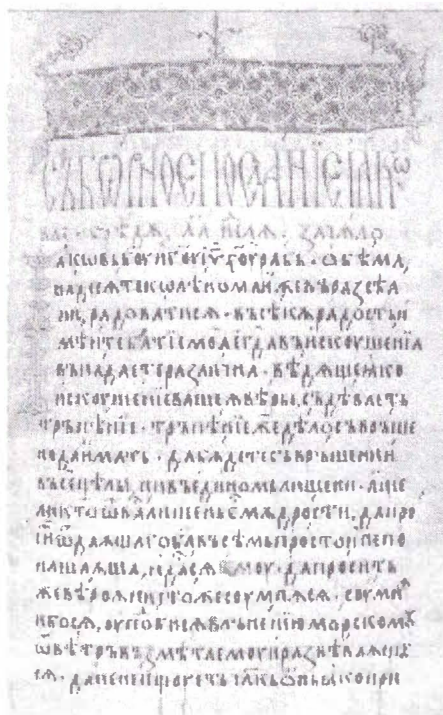 СЪБѠРНОЕ ПОСЛАНЇЕ ІАКѠ
аковь б҃оу и г҃оу і҃у х҃оу рабь · ѡбѣма
надесѧте колѣномаижевъ разсѣа
ни, радоватисѧ · въсѣкѫ радость и
мѣите братїе моа егда въ искоушенїа
въпадаете различна · вѣдѧще ꙗко
искоушенїе вашеѧ вѣры, съдѣваеть
трьпѣнїе · трьпѣнїе же дѣло съврьше
но да имать · да бѫдете съврьшени и
въсецѣлы, ни въ едином лишени · аще
ли кто ѿ лишень ес мѫдрости, да про
сит ѿ даѫщаго б҃а въсѣмь просто и не по
нашаѫща, и дасѧ емоу · да просить
же вѣроѫ ничтоже соумнѧсѧ · соумнѧ
и бо сѧ, оуподобисѧ влънению морскомꙋ
ѿ вѣтръ възмѣтаемоу и развѣваѫщꙋ
сѧ · да не непщоуеть чл҃къ ѡнь ꙗко при